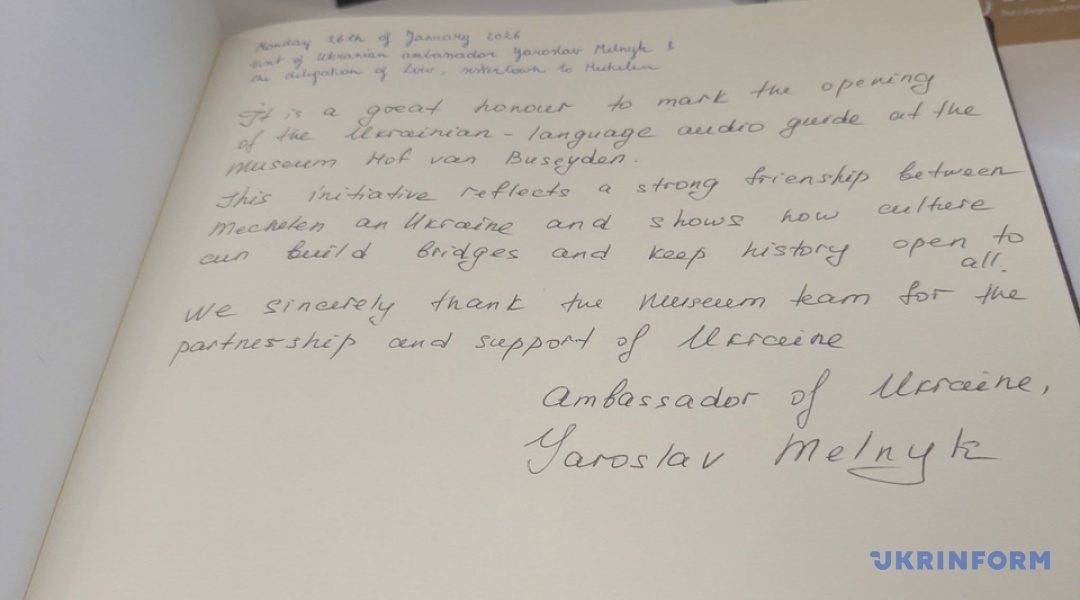 Monday 26th of January 2026
visit of Ukranian ambassador Yaroslav Melnyk &
the delegation of Lviv, sistertown to Mechelen
It is a great honour to mark the opening
of the Ukrainian-language audio guide at the
museum Hof van Buseyden.
This initiative reflects a strong frienship between
Mechelen an Ukraine and shows how culture
can build bridges and keep history open to
all.
We sincerely thank the Museum team for the
partnership and support of Ukraine
Ambassador of Ukraine,
Yaroslav Melnyk
UKRINFORM